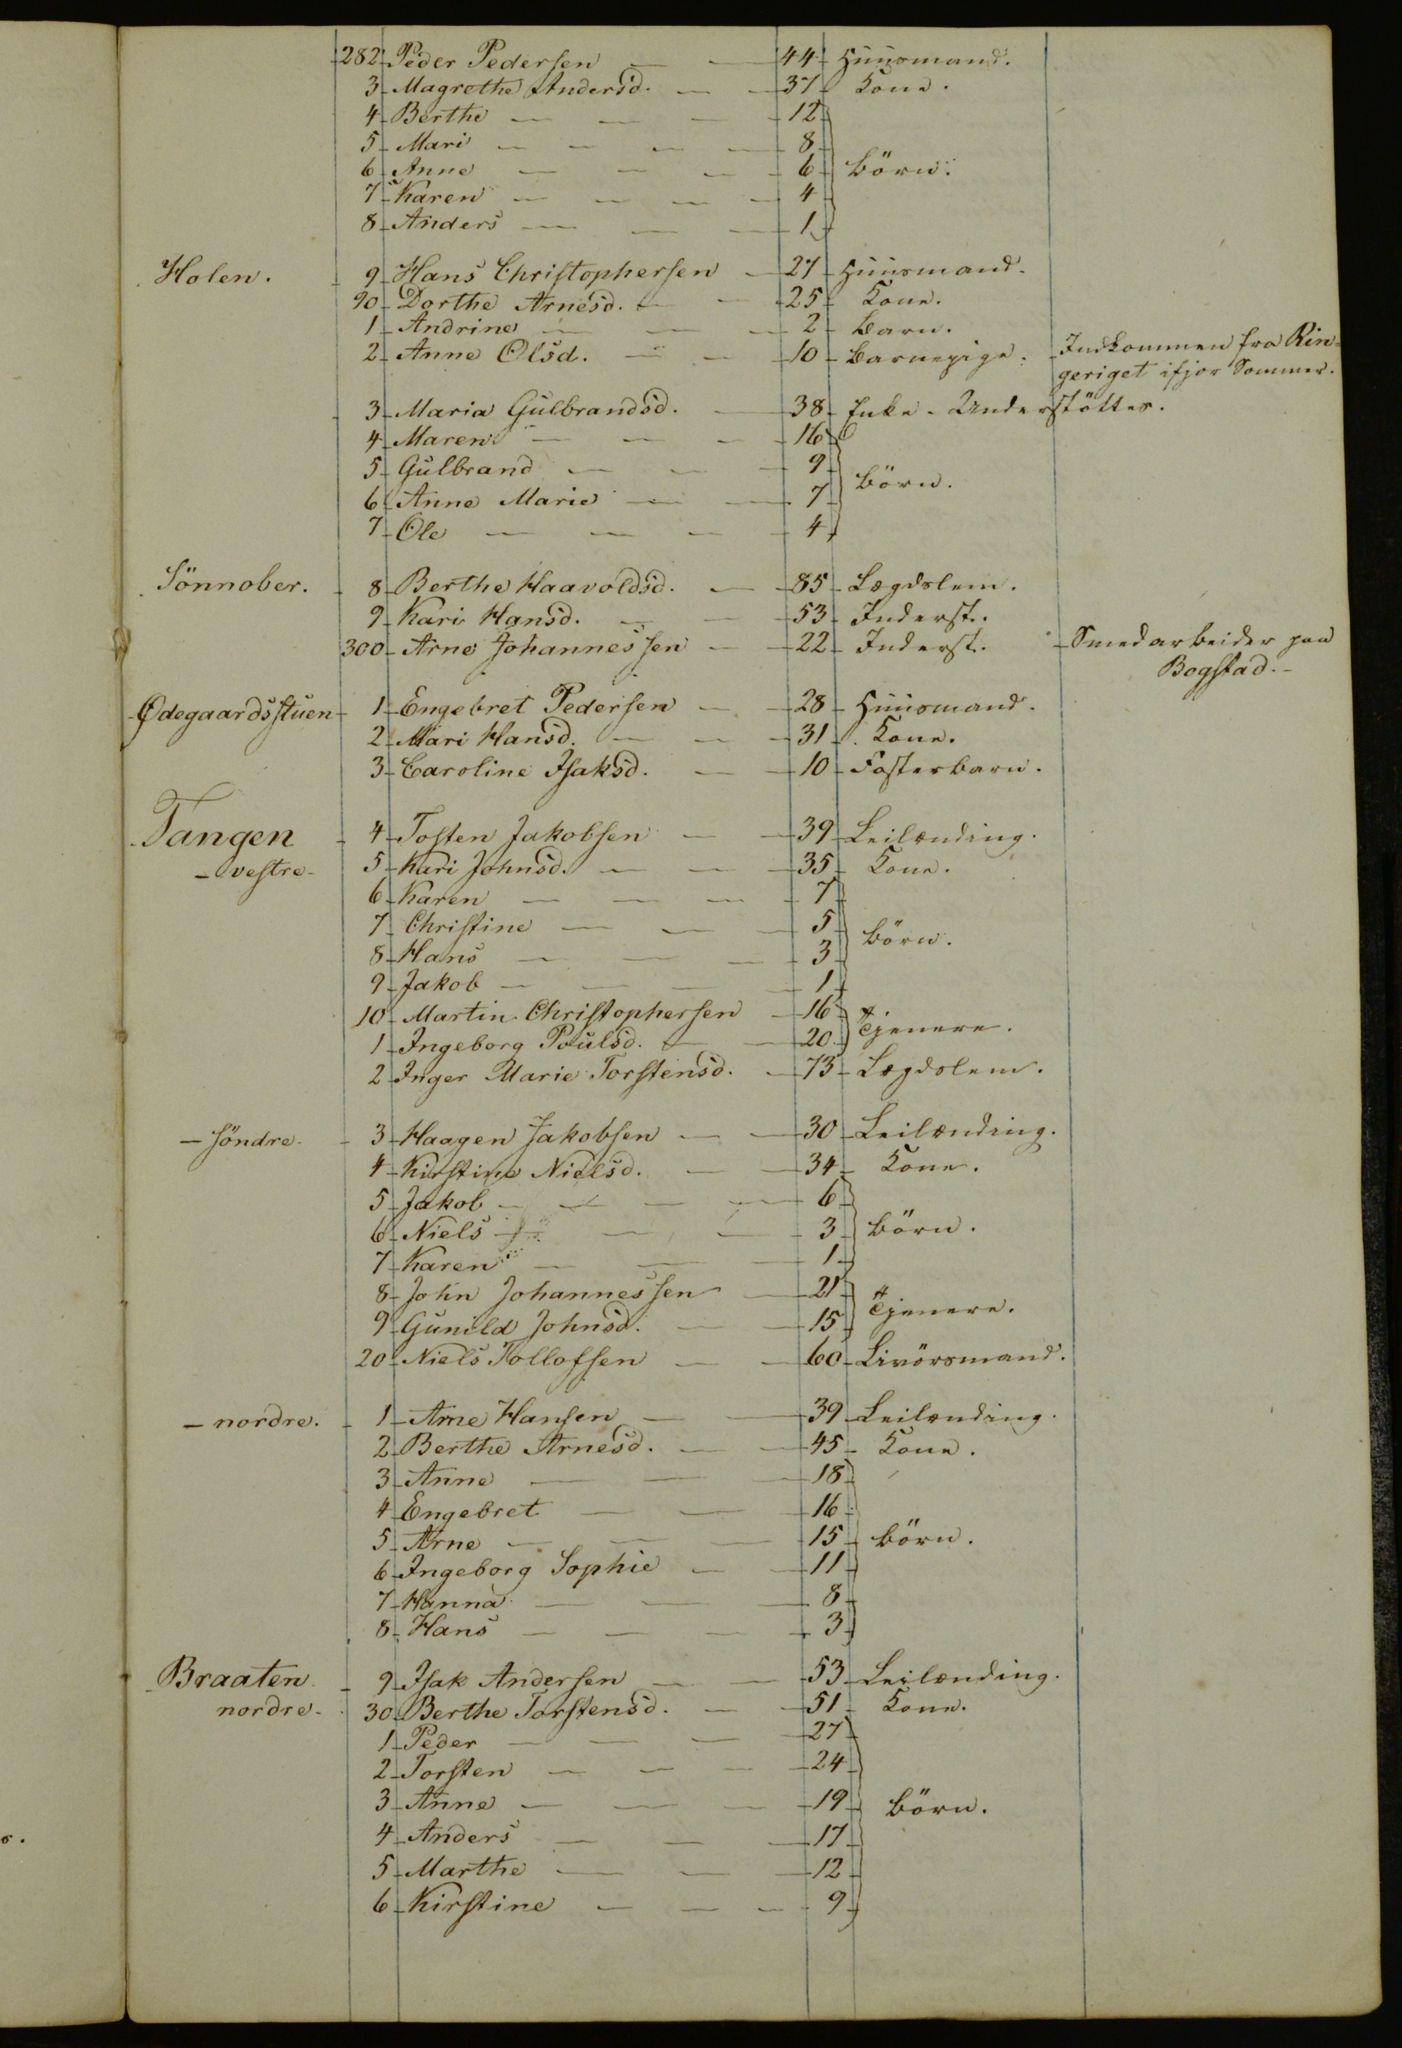 282 Peder Pedersen — — 44 Huusmand.
3 Magrethe Andersd. — — 37 Kone.
4 Berthe — — — 12
5 Mari — — — — 8
6 Anne — — — 6 Börn.
7 Karen — — — — 4
8 Anders — — — 1
Holen. 9 Hans Christophersen — 27 Huusmand.
90 Dorthe Arnesd. — — 25 Kone.
1 Andrine — — — 2 Barn.
2 Anne Olsd. — — 10 Barnepige. Indkommen fra Rin-
geriget ifjor Sommer.
3 Maria Gulbrandsd. — 38 Enke - Understöttes.
4 Maren — — — 16
5 Gulbrand — — — 9
Börn.
6 Anne Marie — — 7
7 Ole — — — — 4
Sönnober. 8 Berthe Haavoldsd. — 85 Lægdslem.
9 Kari Hansd. — — 53 Inderst.
300 Arne Johannessen — 22 Inderst. Smedarbeider paa
Bogstad. -
Ødegaardsstuen 1 Engebret Pedersen — — 28 Huusmand.
2 Mari Hansd. — — — 31 Kone.
3 Caroline Isaksd. — — 10 Fosterbarn.
Tangen 4 Tosten Jakobsen — — 39 Leilænding.
- vestre - 5 Kari Johnsd. — — — 35 Kone.
6 Karen — — — — 7
7 Christine — — — 5
Börn.
8 Hans — — — 3
9 Jakob — — — — 1
10 Martin Christophersen — 16
Tjenere.
1 Ingeborg Poulsd. — — 20
2 Inger Marie Torstensd. — 73 Lægdslem.
- söndre. 3 Haagen Jakobsen — — 30 Leilænding.
4 Kirstine Nielsd. — — 34 Kone.
5 Jakob — — — — 6
6 Niels — — — 3 Börn.
7 Karen — — — 1
8 John Johannessen — 21
Tjenere.
9 Gunild Johnsd. — — 15
20 Niels Tollofsen — — 60 Livörsmand.
- nordre. 1 Arne Hansen — — 39 Leilænding.
2 Berthe Arnesd. — — 45 Kone.
3 Anne — — — 18
4 Engebret — — — 16
5 Arne — — — 15 Börn.
6 Ingeborg Sophie — — 11
7 Hanna — — — 8
8 Hans — — — 3
Braaten 9 Isak Andersen — — 53 Leilænding.
nordre. 30 Berthe Torstensd. — — 51 Kone.
1 Peder — — — 27
2 Torsten — — — 24
3 Anne — — — 19 Börn.
4 Anders — — — 17
5 Marthe — — — 12
6 Kirstine — — — 9